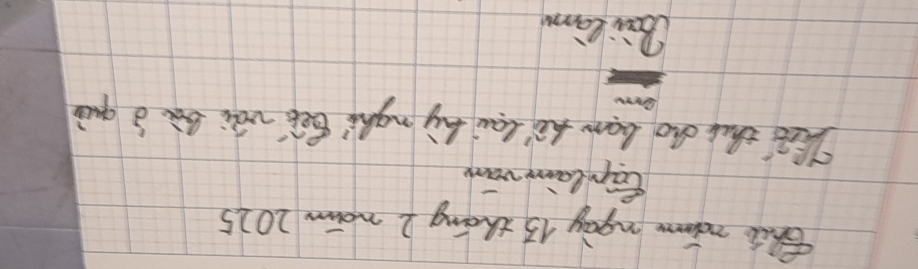 Thứ năm ngày 13 tháng 2 năm 2025
Tập làm văn
Viết thư cho bạn kể lại kỳ nghỉ tết với bà ở quê
em
Bài làm